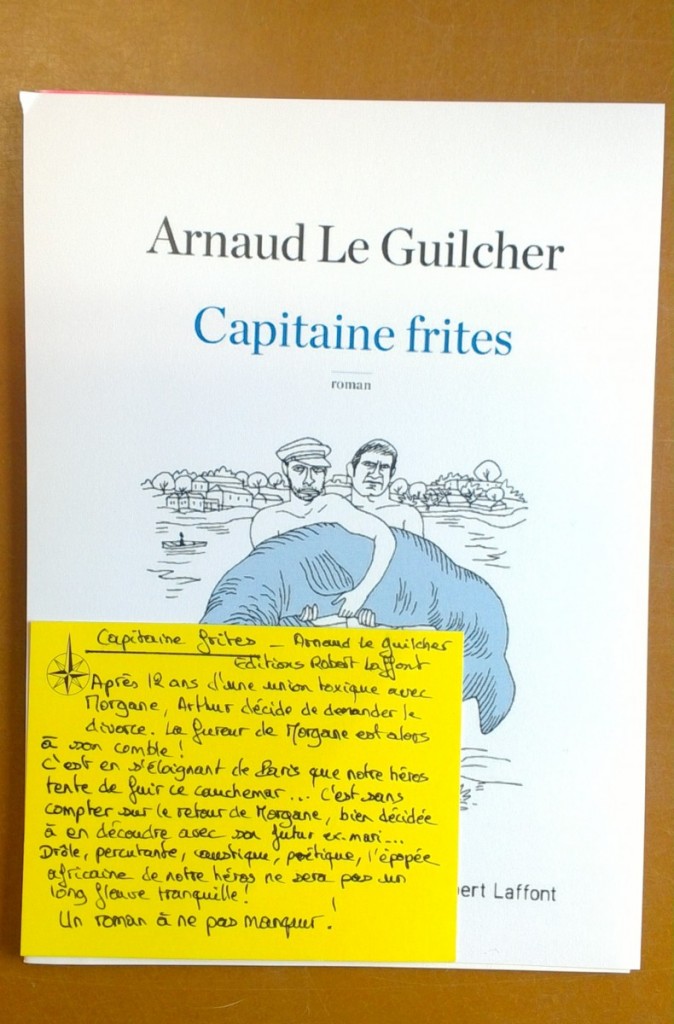 Arnaud Le Guilcher
Capitaine frites
roman
Capitaine frites – Arnaud Le Guilcher
Editions Robert Laffont
Après 12 ans d'une union toxique avec
Morgane, Arthur décide de demander le
divorce. La fureur de Morgane est alors
à son comble !
C'est en s'éloignant de Paris que notre héros
tente de fuir ce cauchemar... C'est sans
compter sur le retour de Morgane, bien décidée
à en découdre avec son futur ex-mari...
Drôle, percutante, caustique, poétique, l'épopée
africaine de notre héros ne sera pas un
long fleuve tranquille !
Un roman à ne pas manquer !
bert Laffont